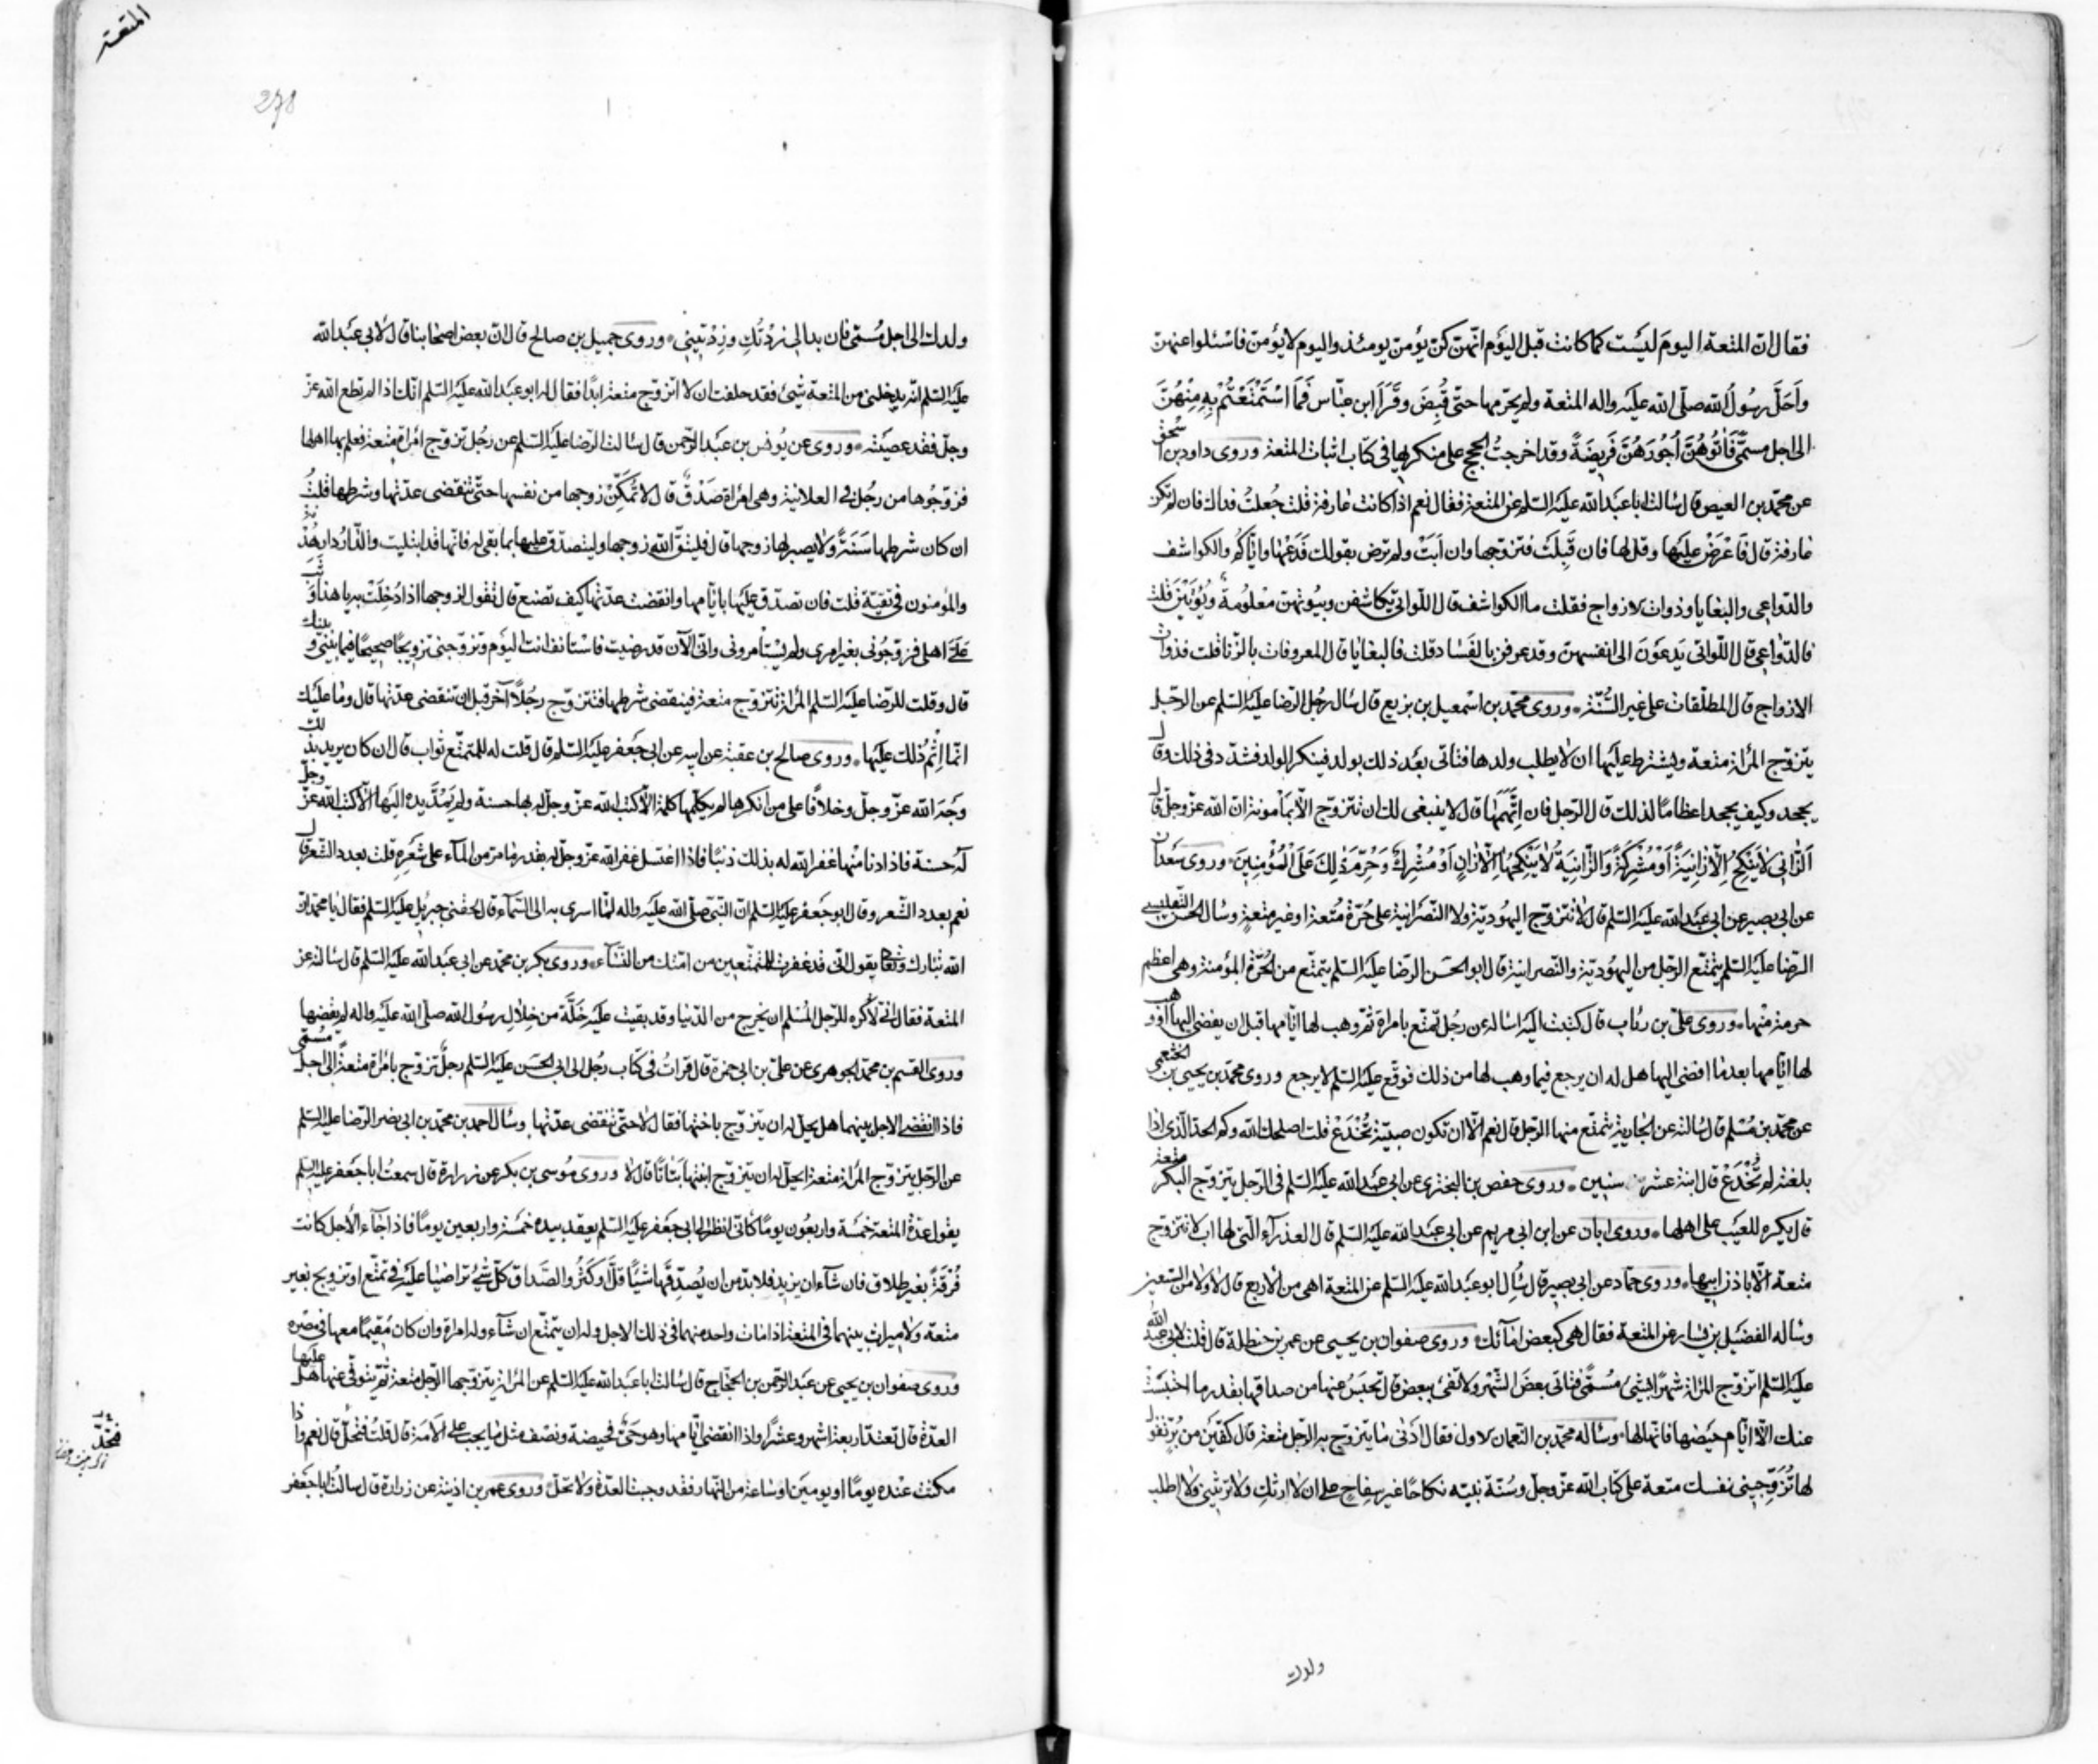 فقال ان المتعة اليوم ليست كما كانت قبل اليوم انهن كن يؤمن يومئذ واليوم لا يؤمن فاسئلوا عنهن
واحل رسول الله صلى الله عليه واله المتعة ولم يحرمها حتى قبض وقرا ابن عباس فَمَا اسْتَمْتَعْتُمْ بِهِ مِنْهُنَّ
الى اجل مسمى فَاٰتُوهُنَّ اُجُورَهُنَّ فَرِيضَةً وقد اخرجت الحجج على منكريها في كتاب اثبات المتعة وروى داود بن اسحق
عن محمد بن العيص قال سالت ابا عبد الله عليه السلم عن المتعة فقال نعم اذا كانت عارفة قلت جعلت فداك فان لم تكن
عارفة قال فاعرض عليها وقل لها فان قبلت فتزوجها وان ابت ولم ترض بقولك فدعها واياكم والكواشف
والدواعي والبغايا وذوات الازواج فقلت ما الكواشف قال اللواتي يكاشفن وبيوتهن معلومة ويؤتين قلت
فالدواعي قال اللواتي يدعون الى انفسهن وقد عرفن بالفساد قلت فالبغايا قال المعروفات بالزنا قلت فذوات
الازواج قال المطلقات على غير السنة وروى محمد بن اسمعيل بن بزيع قال سال رجل الرضا عليه السلم عن الرجل
يتزوج المراة متعة ويشترط عليها ان لا يطلب ولدها فتاتي بعد ذلك بولد فينكر الولد فشدد في ذلك وقال
يجحد وكيف يجحد اعظاما لذلك قال الرجل فان اتهمها قال لا ينبغي لك ان تتزوج الا بمامونة ان الله عز وجل قال
اَلزَّانِي لَا يَنْكِحُ اِلَّا زَانِيَةً اَوْ مُشْرِكَةً وَالزَّانِيَةُ لَا يَنْكِحُهَا اِلَّا زَانٍ اَوْ مُشْرِكٌ وَحُرِّمَ ذٰلِكَ عَلَى الْمُؤْمِنِينَ وروى سعدان
عن ابي بصير عن ابي عبد الله عليه السلم قال لا تتزوج اليهودية ولا النصرانية على حرة متعة او غير متعة وسال الحسن التفليسي
الرضا عليه السلم يتمتع الرجل من اليهودية والنصرانية قال ابو الحسن الرضا عليه السلم يتمتع من الحرة المؤمنة وهي اعظم
حرمة منها وروى علي بن رئاب قال كتبت اليه اساله عن رجل تمتع بامراة ثم وهب لها ايامها قبل ان يفضي اليها او وهب
لها ايامها بعد ما افضى اليها هل له ان يرجع فيما وهب لها من ذلك فوقع عليه السلم لا يرجع وروى محمد بن يحيى الخثعمي
عن محمد بن مسلم قال سالته عن الجارية يتمتع منها الرجل قال نعم الا ان تكون صبية تخدع قلت اصلحك الله وكم الحد الذي اذا
بلغته لم تخدع قال ابنة عشر سنين وروى حفص بن البختري عن ابي عبد الله عليه السلم في الرجل يتزوج البكر متعة
قال يكره للعيب على اهلها وروى ابان عن ابن ابي مريم عن ابي عبد الله عليه السلم قال العذراء التي لها اب لا تتزوج
متعة الا باذن ابيها وروى حماد عن ابي بصير قال سئل ابو عبد الله عليه السلم عن المتعة اهي من الاربع قال لا ولا من السبعين
وساله الفضيل بن يسار عن المتعة فقال هي كبعض امائك وروى صفوان بن يحيى عن عمر بن حنظلة قال قلت لابي عبد الله
عليه السلم اتزوج المراة شهرا بشئ مسمى فتاتي بعض الشهر ولا تفي ببعض قال تحبس عنها من صداقها بقدر ما احتبست
عنك الا ايام حيضها فانها لها وساله محمد بن النعمان الاول فقال ادنى ما يتزوج به الرجل متعة قال كفين من بر تقول
لها تزوجيني نفسك متعة على كتاب الله عز وجل وسنة نبيه نكاحا غير سفاح على ان لا ارثك ولا ترثيني ولا اطلب
ولدك
المتعة
278
ولدك الى اجل مسمى فان بدا لي زدتك وزدتيني وروى جميل بن صالح قال ان بعض اصحابنا قال لابي عبد الله
عليه السلم انه يدخلني من المتعة شئ فقد حلفت ان لا اتزوج متعة ابدا فقال له ابو عبد الله عليه السلم انك اذا لم تطع الله عز
وجل فقد عصيته وروى عن يونس بن عبد الرحمن قال سالت الرضا عليه السلم عن رجل تزوج امراة متعة فعلم بها اهلها
فزوجوها من رجل في العلانية وهي امراة صدق قال لا تمكن زوجها من نفسها حتى تنقضي عدتها وشرطها قلت
ان كان شرطها سنة ولا يصبر لها زوجها قال فليتق الله زوجها وليتصدق عليها بما بقي له فانها قد ابتليت والدار دار هدنة
والمؤمنون في تقية قلت فان تصدق عليها بايامها وانقضت عدتها كيف تصنع قال تقول لزوجها اذا دخلت به يا هذا وثب
علي اهلي فزوجوني بغير امري ولم يستامروني واني الآن قد رضيت فاستانف انت اليوم وتزوجني تزويجا صحيحا فيما بيني وبينك
قال وقلت للرضا عليه السلم المراة تتزوج متعة فينقضي شرطها فتتزوج رجلا آخر قبل ان تنقضي عدتها قال وما عليك
انما اثم ذلك عليها وروى صالح بن عقبة عن ابيه عن ابي جعفر عليه السلم قال قلت له للمتمتع ثواب قال ان كان يريد بذلك
وجه الله عز وجل وخلافا على من انكرها لم يكلمها كلمة الا كتب الله عز وجل له بها حسنة ولم يمد يده اليها الا كتب الله عز وجل
له حسنة فاذا دنا منها غفر الله له بذلك ذنبا فاذا اغتسل غفر الله عز وجل له بقدر ما مر من الماء على شعره قلت بعدد الشعر قال
نعم بعدد الشعر وقال ابو جعفر عليه السلم ان النبي صلى الله عليه واله لما اسري به الى السماء قال لحقني جبرئيل عليه السلم فقال يا محمد ان
الله تبارك وتعالى يقول اني قد غفرت للمتمتعين من امتك من النساء وروى بكر بن محمد عن ابي عبد الله عليه السلم قال سالته عن
المتعة فقال اني لاكره للرجل المسلم ان يخرج من الدنيا وقد بقيت عليه خلة من خلال رسول الله صلى الله عليه واله لم يقضها
وروى القسم بن محمد الجوهري عن علي بن ابي حمزة قال قرات في كتاب رجل الى ابي الحسن عليه السلم رجل تزوج بامراة متعة الى اجل مسمى
فاذا انقضى الاجل بينهما هل يحل له ان يتزوج باختها فقال لا حتى تنقضي عدتها وسال احمد بن محمد بن ابي نصر الرضا عليه السلم
عن الرجل يتزوج المراة متعة ايحل له ان يتزوج ابنتها بتاتا قال لا وروى موسى بن بكر عن زرارة قال سمعت ابا جعفر عليه السلم
يقول عدة المتعة خمسة واربعون يوما كاني انظر الى ابي جعفر عليه السلم يعقد بيده خمسة واربعين يوما فاذا جاء الاجل كانت
فرقة بغير طلاق فان شاء ان يزيد فلا بد من ان يصدقها شيئا قل او كثر والصداق كل شئ تراضيا عليه في تمتع او تزويج بغير
متعة ولا ميراث بينهما في المتعة اذا مات واحد منهما في ذلك الاجل وله ان يتمتع ان شاء وله امراة وان كان مقيما معها في مصره
وروى صفوان بن يحيى عن عبد الرحمن بن الحجاج قال سالت ابا عبد الله عليه السلم عن المراة يتزوجها الرجل متعة ثم يتوفى عنها هل عليها
العدة قال تعتد اربعة اشهر وعشرا واذا انقضت ايامها وهو حي فحيضة ونصف مثل ما يجب على الامة قال قلت فتحد قال نعم واذا
مكثت عنده يوما او يومين او ساعة من النهار فقد وجبت العدة ولا تحد وروى عمر بن اذينة عن زرارة قال سالت ابا جعفر
فتحد